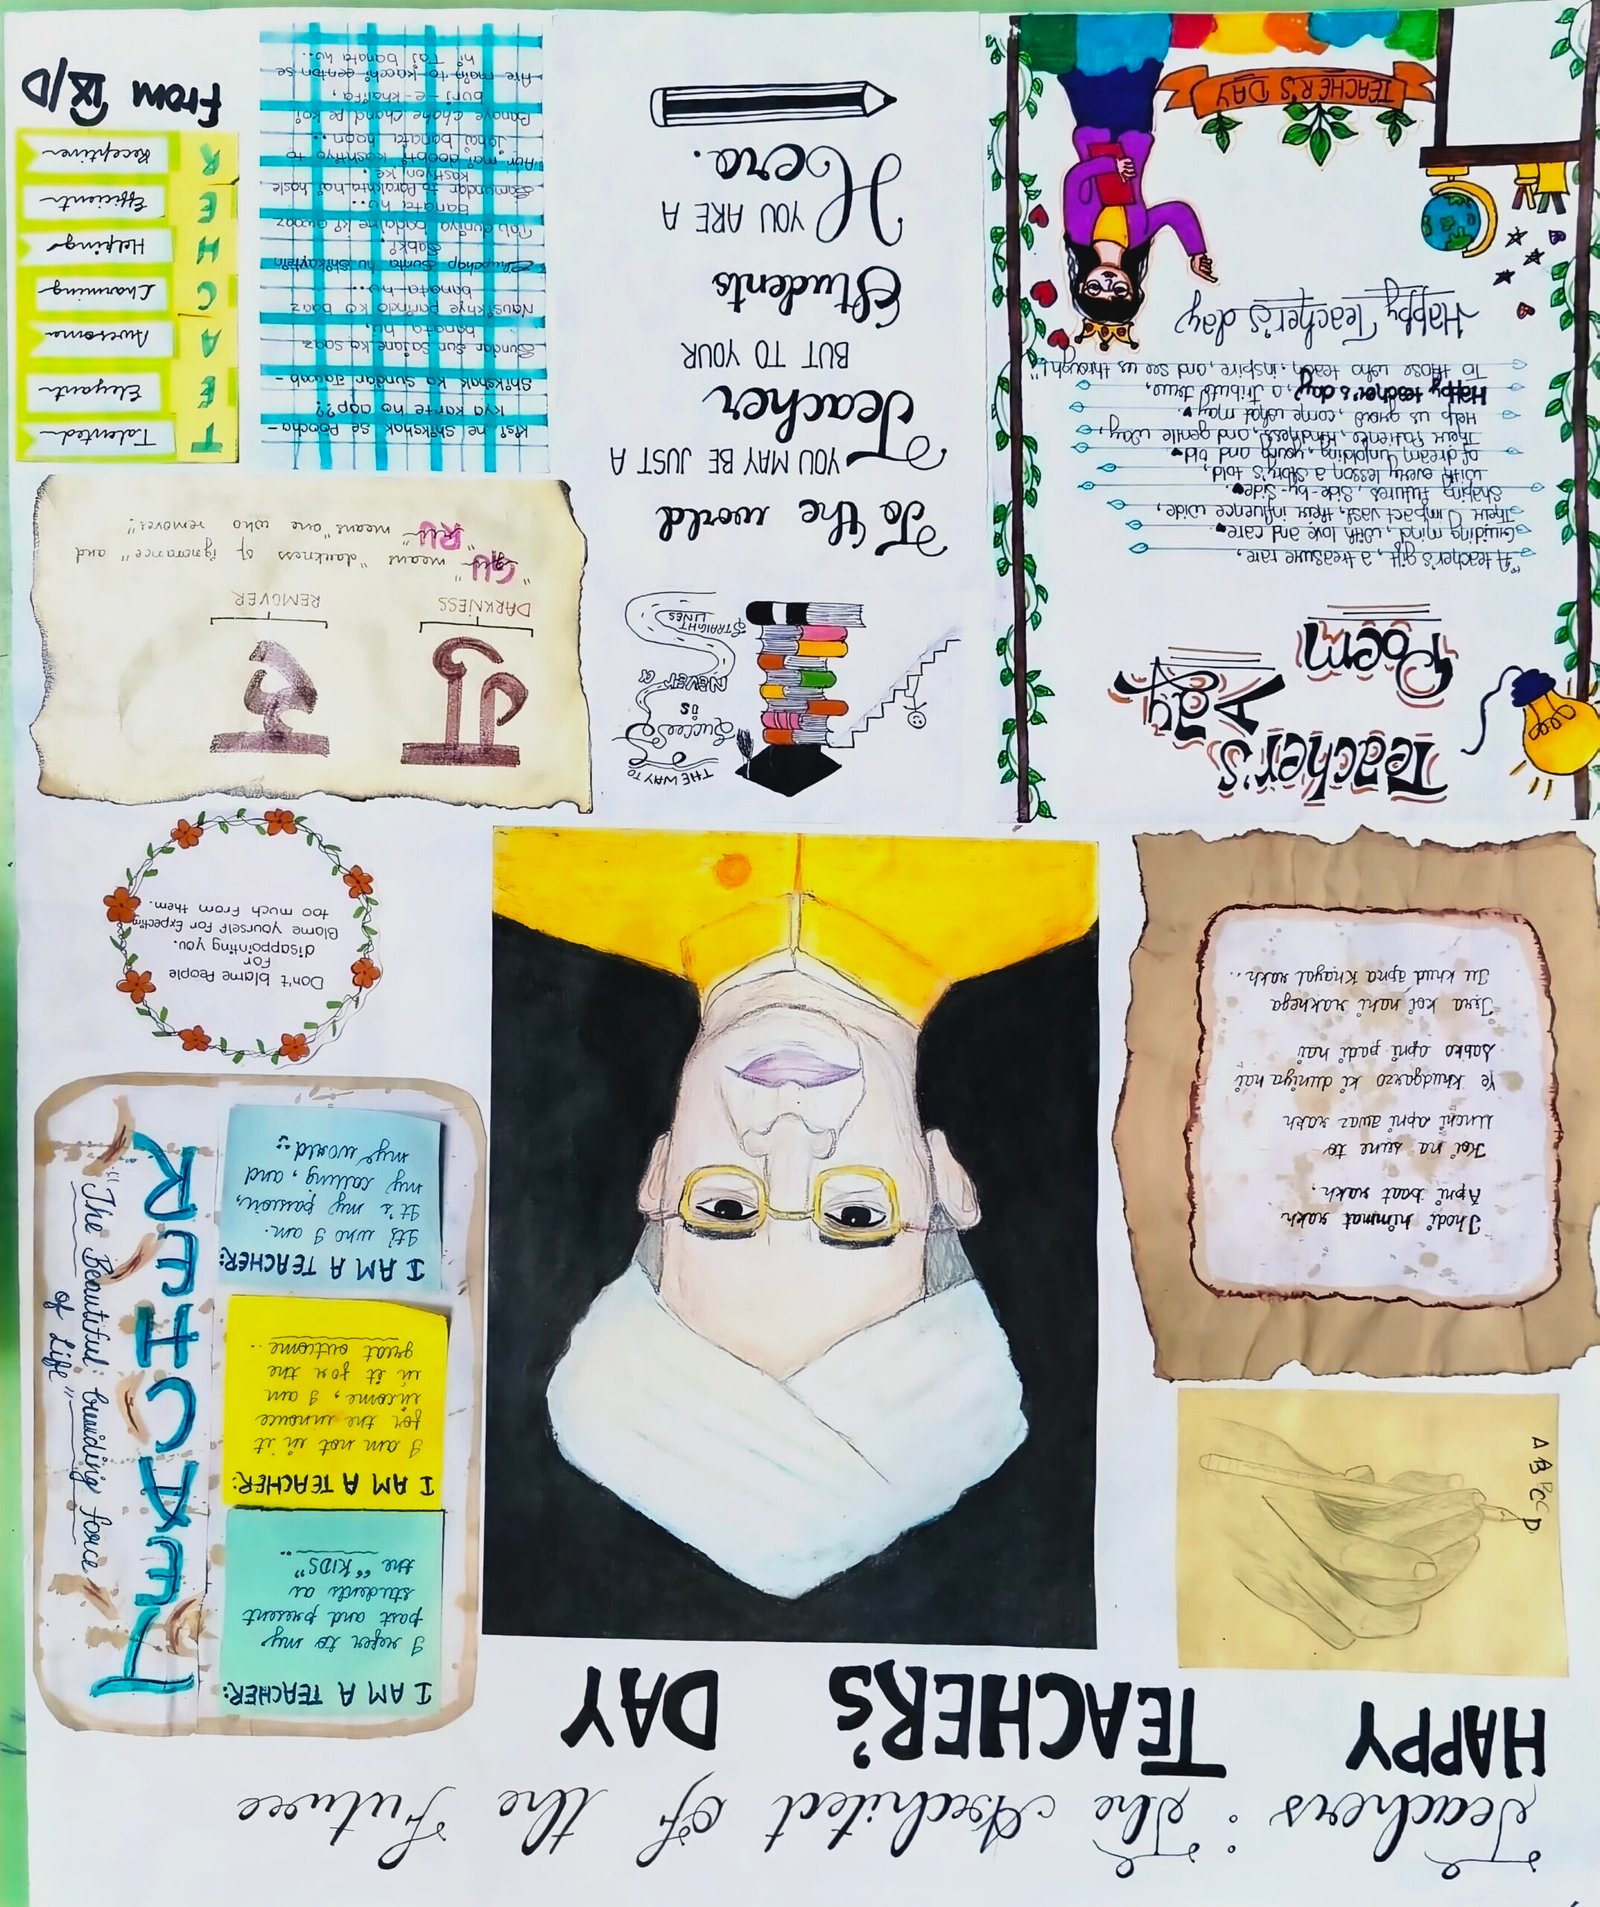 Teachers : The Architect of the Future
HAPPY TEACHER'S DAY
A B C D
Thodi himmat rakh
Apni baat rakh,
Koi na sune to
Unchi apni awaz rakh
Ye Khudgarzo ki duniya hai
Sabko apni padi hai
Tera koi nahi rakhega
Tu khud apna Khayal rakh..
I AM A TEACHER:
I refer to my
past and present
students as
the "KIDS"..
I AM A TEACHER:
I am not in it
for the
income, I am
in it for the
great outcome..
I AM A TEACHER:
It's who I am.
It's my passion,
my calling, and
my world
TEACHER
"The Beautiful guiding force
of Life"
Don't blame People
For
disappointing you.
Blame yourself For Expecting
too much From them.
Teacher's
Day
Poem
"A teacher's gift, a treasure rare,
Guiding mind, with love and care.
Their impact vast, their influence wide,
Shaping futures, side-by-side.
With every lesson a story's told,
of dream unfolding, young and old.
Their patience, kindness, and gentle way,
Help us grow, come what may.
Happy teacher's day, a tribute true,
To those who teach, inspire, and see us through!"
Happy Teacher's day
TEACHER'S DAY
THE WAY TO
Success
is
NEVER a
STRAIGHT
LINES
To the world
YOU MAY BE JUST A
Teacher
BUT TO YOUR
Students
YOU ARE A
Hero.
गु रु
DARKNESS REMOVER
"GU" means "darkness of ignorance" and
"RU" means "one who removes"
Kisi ne Shikshak se Poocha-
kya karte ho aap??
Shikshak ka Sundar Jawab-
Sundar Sur Sajane ko saaz
banata hu,
Nausikhye parindo ko baaz
banata hu...
Chupchap Sunta hu Shikayatein
Sabki,
Tab duniya badalne ki awaaz
banata hu...
Samundar to Parakhta hai hosle
kashtiyon ke,
Aur mai doobti kashtiyo to
Jahaj banata hoon...
Banaye chahe chand pe koi
burj-e-khalifa,
Are main to kacchi eenton se
hi Taj banata hu..
T Talented
E Elegant
A Awesome
C Charming
H Helping
E Efficient
R Receptive
From IX/D